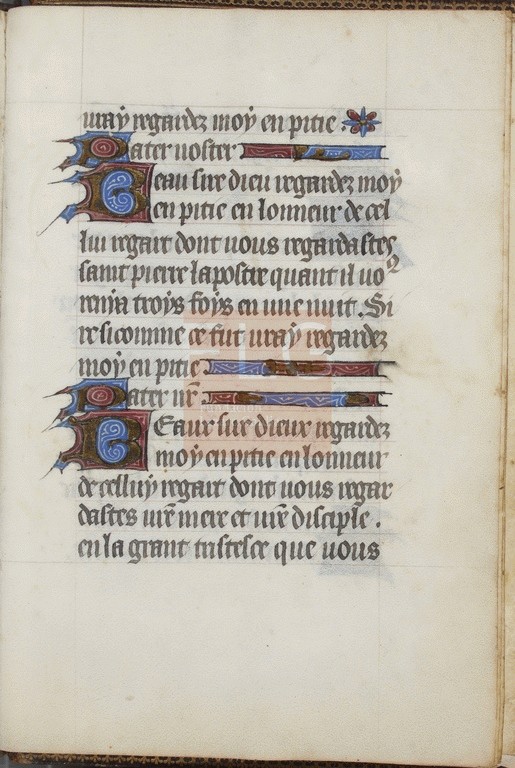 vray regardez moy en pitie.
Pater noster
Beau sire dieu regardez moy
en pitie en lonneur de cel
lui regart dont vous regardastes
saint pierre lapostre quant il vo9
renia troys foys en une nuit. Si
re si comme ce fut vray regardez
moy en pitie
Pater nr̄e
BEaux sire dieux regardez
moy en pitie en lonneur
de celluy regart dont vous regar
dastes vr̄e mere et vr̄e disciple.
en la grant tristesce que vous